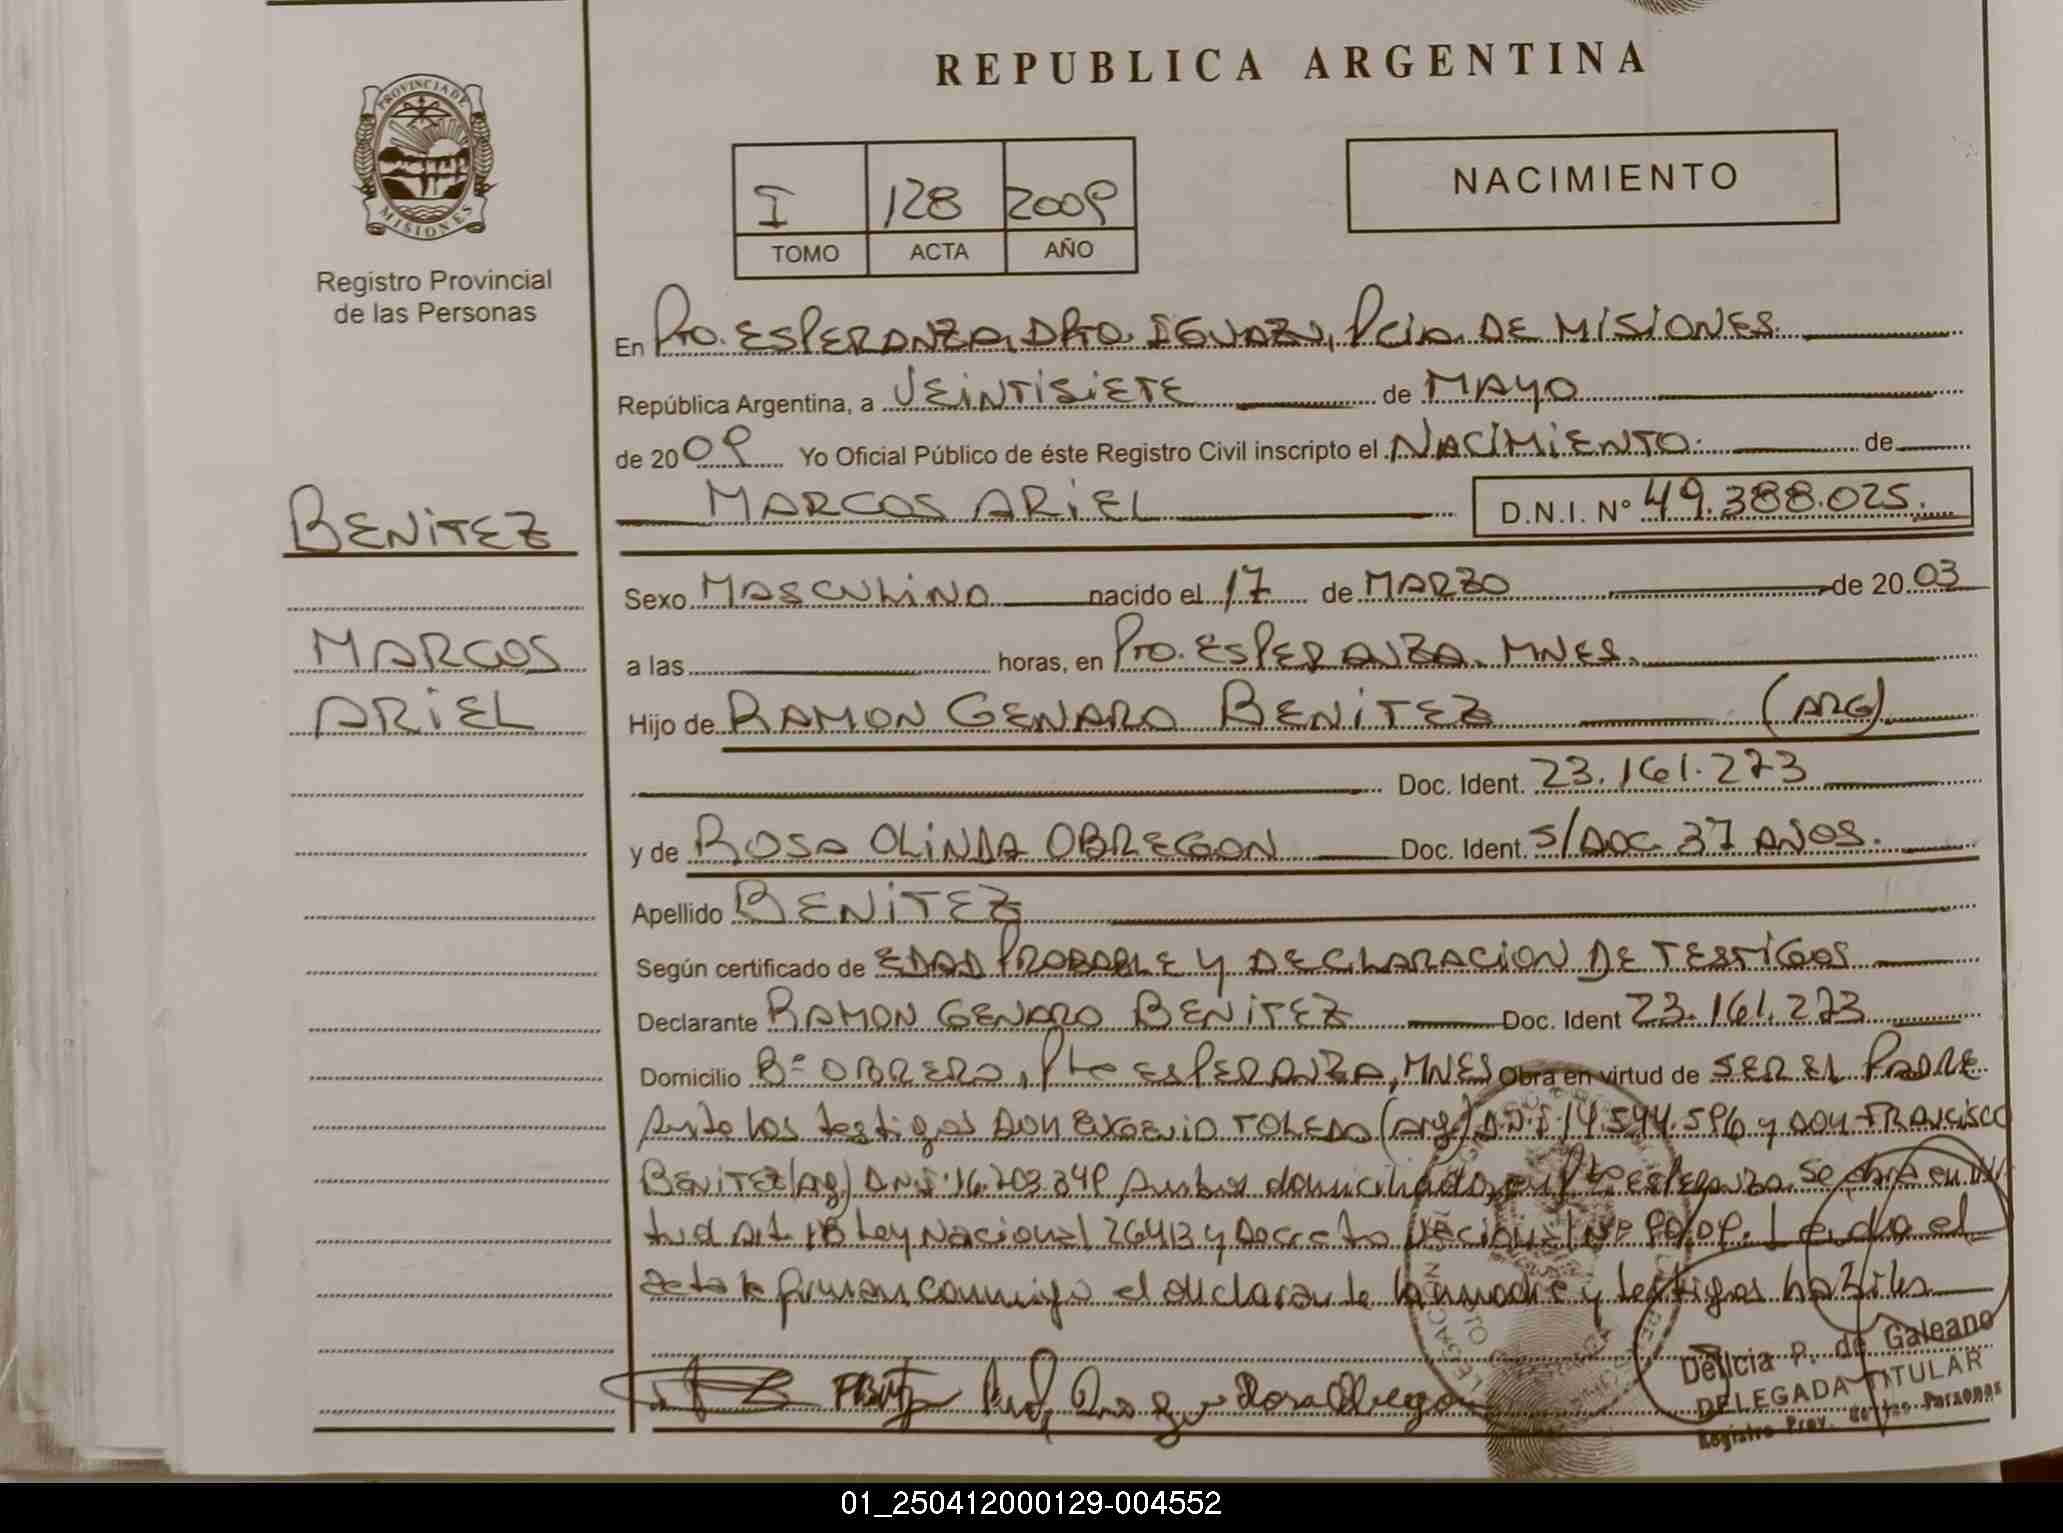 REPUBLICA ARGENTINA
PROVINCIA DE MISIONES
Registro Provincial
de las Personas
I 128 2009
TOMO ACTA AÑO
NACIMIENTO
En Pto. ESPERANZA, DPTO. IGUAZU, Pcia. DE MISIONES.
República Argentina, a VEINTISIETE de MAYO
de 2009 Yo Oficial Público de éste Registro Civil inscripto el NACIMIENTO. de
MARCOS ARIEL D.N.I. Nº 49.388.025.
BENITEZ
MARCOS
ARIEL
Sexo MASCULINO nacido el 17 de MARZO de 2003
a las horas, en Pto. ESPERANZA. MNES.
Hijo de RAMON GENARO BENITEZ (ARG)
Doc. Ident. 23.161.273
y de ROSA OLINDA OBREGON Doc. Ident. S/DOC. 37 AÑOS.
Apellido BENITEZ
Según certificado de EDAD PROBABLE Y DECLARACION DE TESTIGOS
Declarante RAMON GENARO BENITEZ Doc. Ident 23.161.273
Domicilio Bº OBRERO, Pto ESPERANZA, MNES Obra en virtud de SER EL PADRE
Ante los testigos DON EUGENIO TOLEDO (Arg) D.N.I. 14.544.596 y DON FRANCISCO
BENITEZ (Arg) D.N.I. 16.203.349 Ambos domiciliados en Pto ESPERANZA. Se obra en vir
tud Art. Ley Nacional 26413 y Decreto Nacional Nº 90/09. Leida el
acta la firman conmigo el declarante la madre y testigos habiles
Rosa Obregon
Delicia P. de Galeano
DELEGADA TITULAR
Registro Prov. de las Personas
01_250412000129-004552